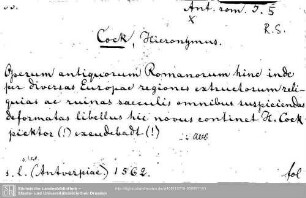 Ant. rom. 3. 5
x
R.S.
Cock, Hieronymus.
Operum antiquorum Romanorum hinc inde
per diversas Europae regiones extructorum reli-
quias ac ruinas saeculis omnibus suspiciendas
deformatas libellus hic novus continet H. Cock
picktor (!) excudebadt (!)
s. l. (Antverpiae) 1562.
fol
Sächsische Landesbibliothek -
Staats- und Universitätsbibliothek Dresden